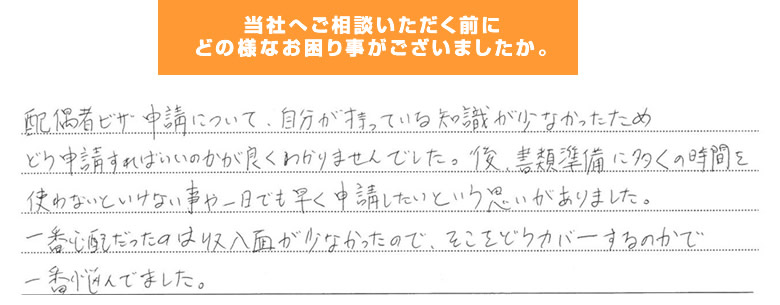 当社へご相談いただく前に
どの様なお困り事がございましたか。
配偶者ビザ申請について、自分が持っている知識が少なかったため
どう申請すればいいのかが良くわかりませんでした。後、書類準備に多くの時間を
使わないといけない事や一日でも早く申請したいという思いがありました。
一番心配だったのは収入面が少なかったので、そこをどうカバーするのかで
一番悩んでました。